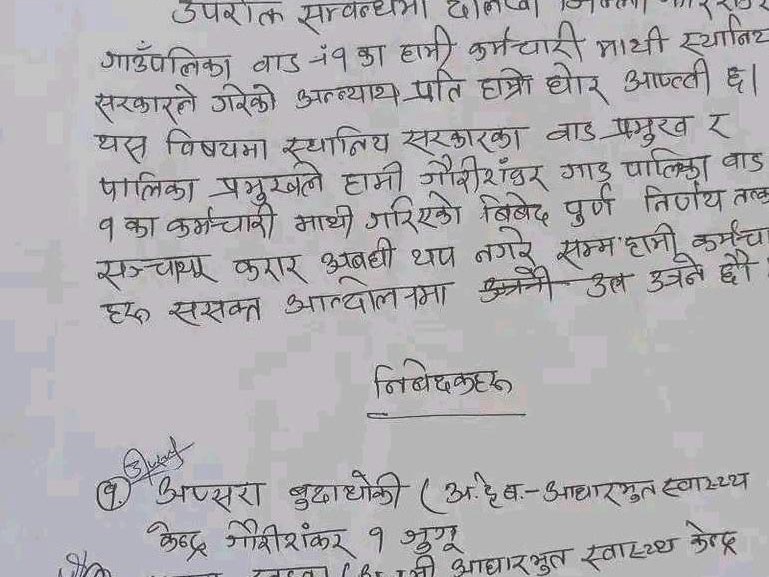 उपरोक्त सम्वन्धमा दोलखा जिल्ला
गाउँपालिका वाड नं १ का हामी कर्मचारी माथी स्थानिय
सरकारले गरेको अन्न्याय प्रति हाम्रो घोर आपत्ती छ।
यस विषयमा स्थानिय सरकारका वाड प्रमुख र
पालिका प्रमुखले हामी गौरीशंकर गाउ पालिका वाड
१ का कर्मचारी माथी गरिएको बिबेद पुर्ण निर्णय
करार अबधी थप नगरे सम्म हामी कर्मचा
हरु ससक्त आन्दोलनमा उत्रने छौ
निबेदकहरू
१. अप्सरा बुढाथोकी ( अ.हे.ब.- आधारभुत स्वास्थ्य
केन्द्र गौरीशंकर १ झुगू
आधारभुत स्वास्थ्य केन्द्र